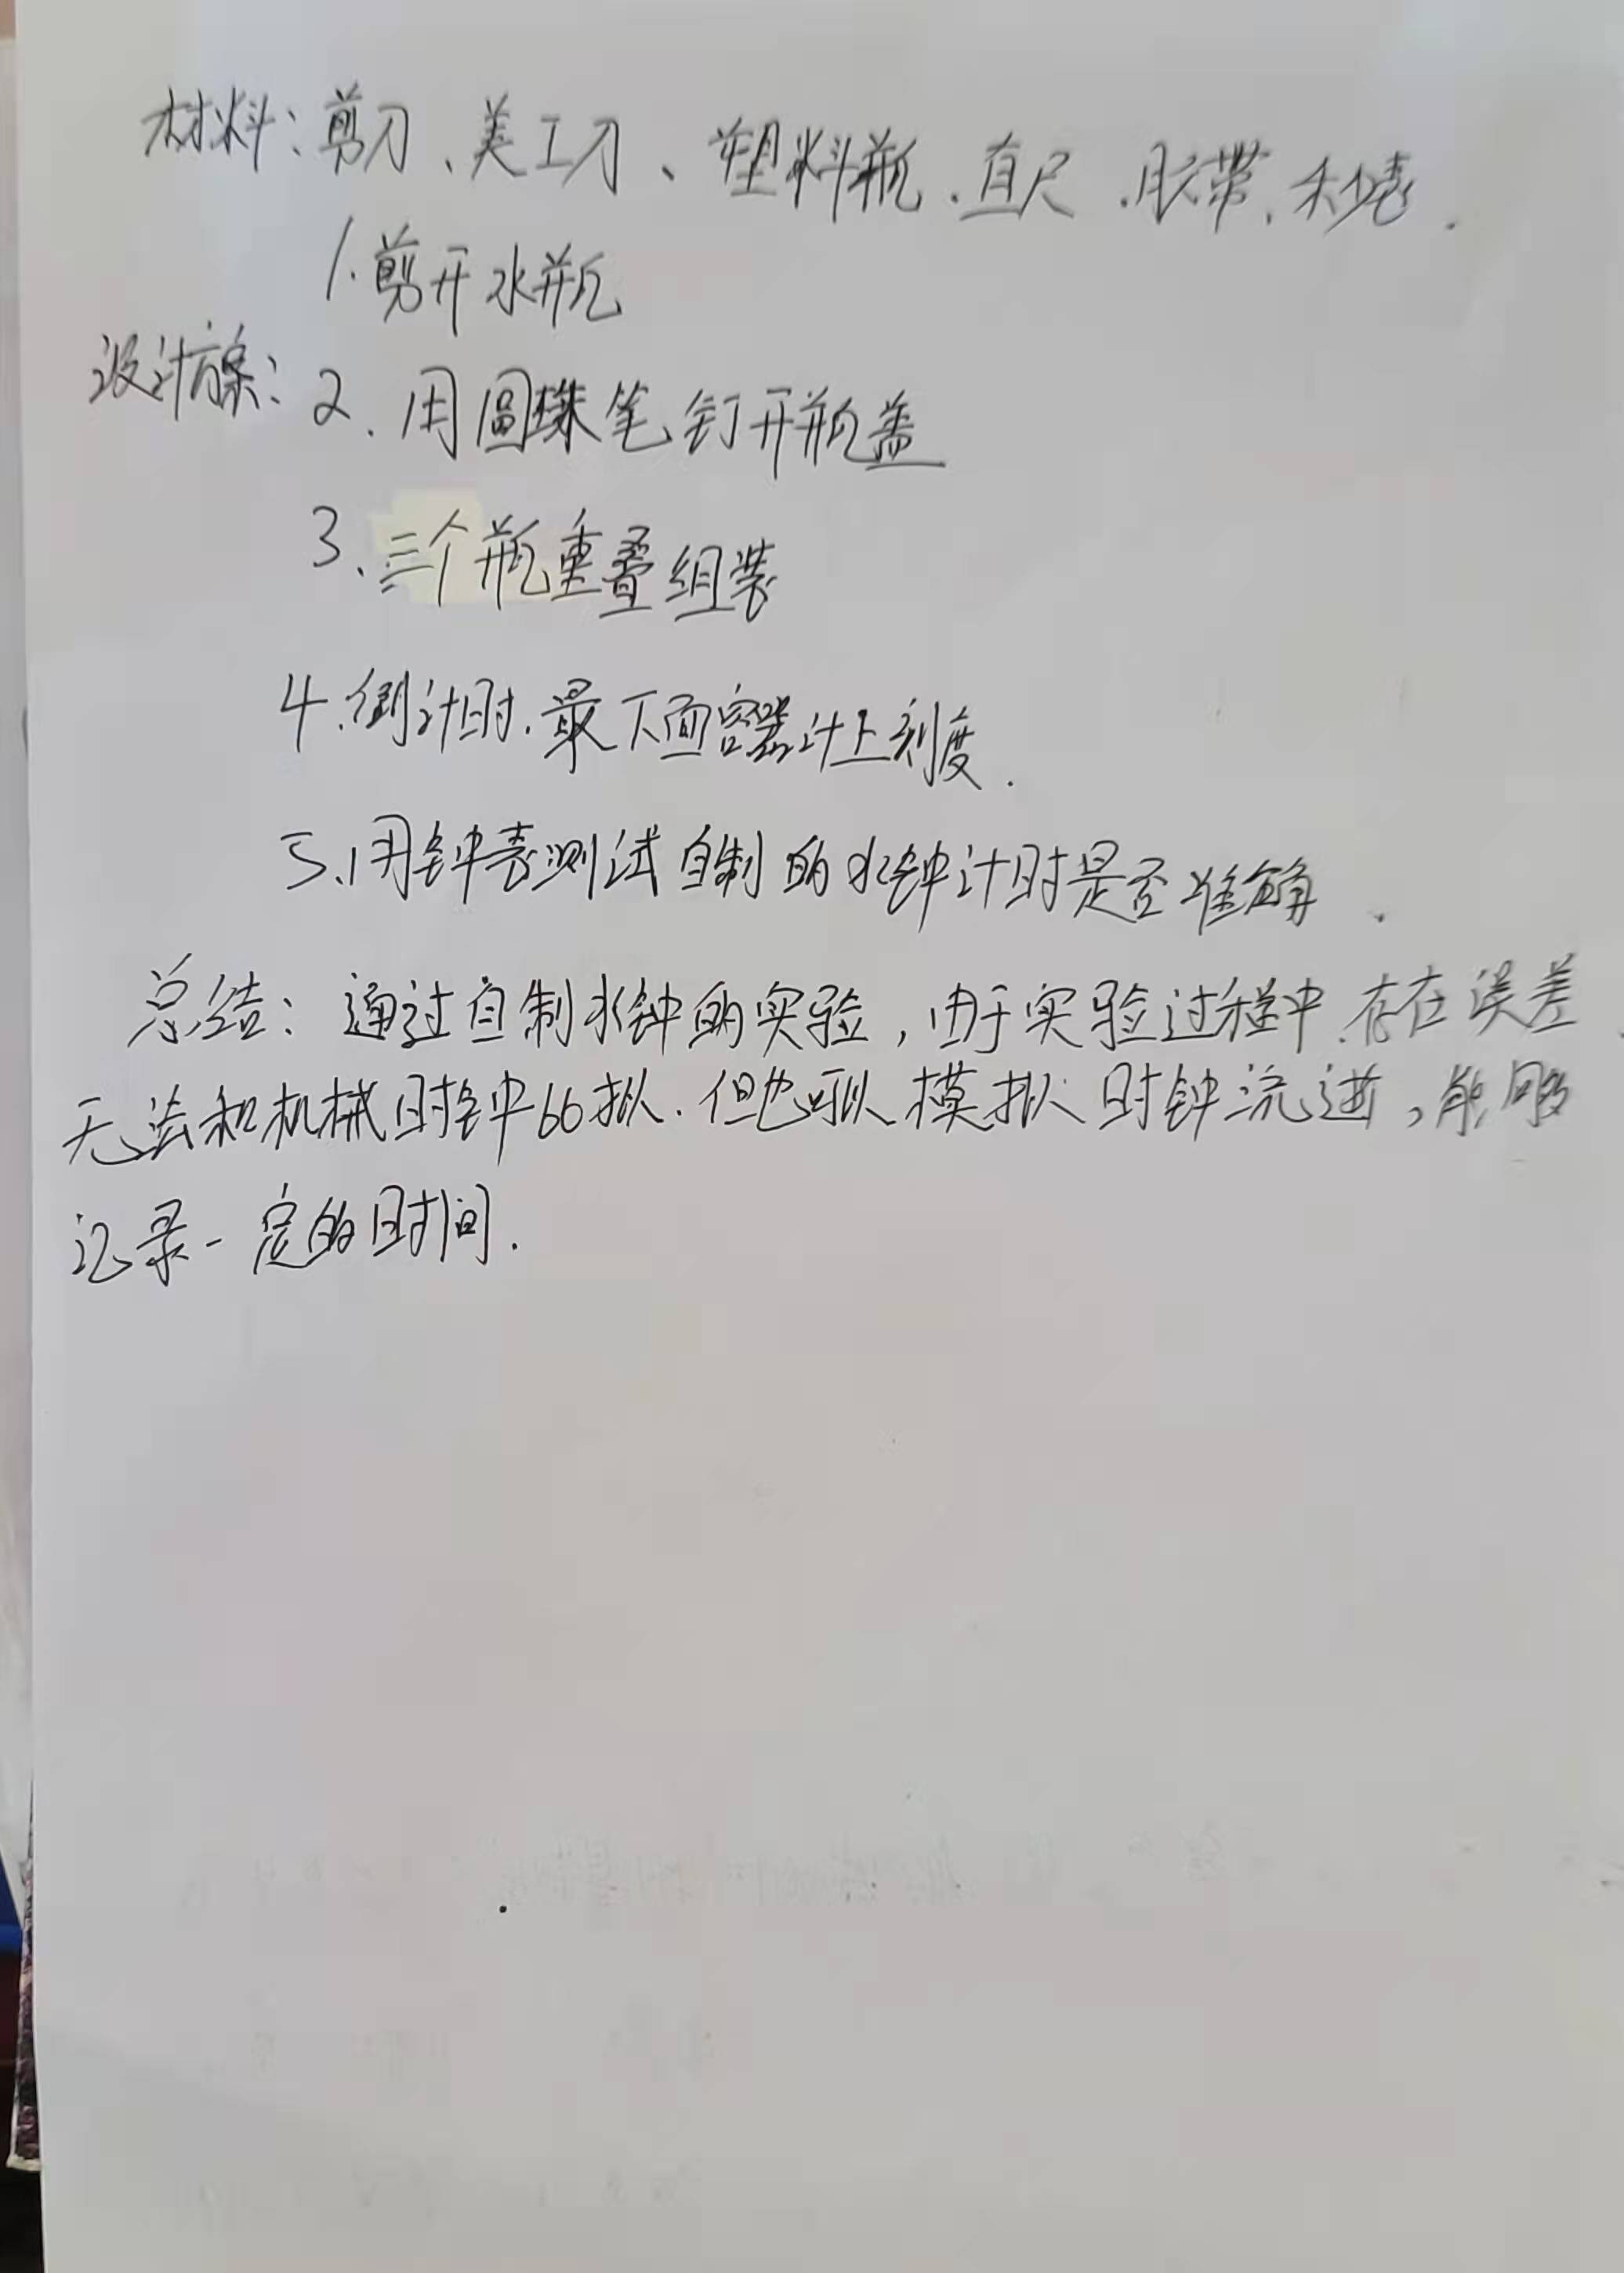 材料：剪刀、美工刀、塑料瓶、直尺、胶带、秒表.
1.剪开水瓶
设计方案：2.用圆珠笔钉开瓶盖
3、三个瓶重叠组装
4.倒计时.最下面容器计上刻度.
5、用钟表测试自制的水钟计时是否准确.
总结：通过自制水钟的实验，由于实验过程中.存在误差.
无法和机械时钟比拟.但也可以模拟时钟流逝，能够
记录一定的时间.